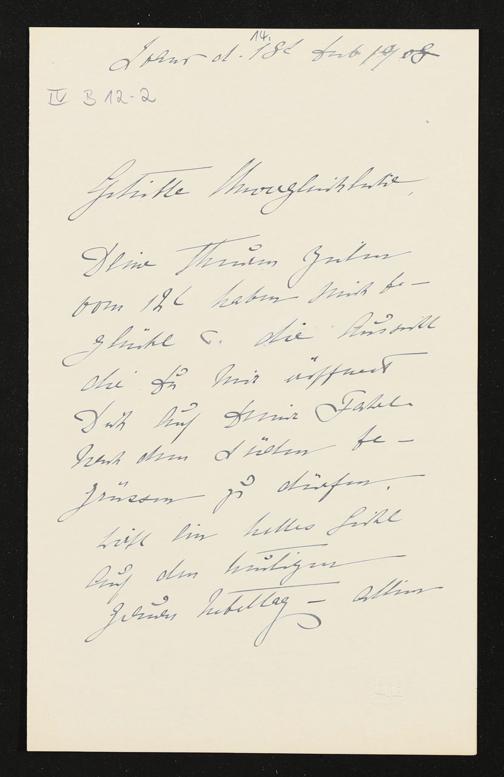 14.
d. 18t Feb 1908
IV B 12-2
Geliebte
Deine Theuren Zeilen
vom 12t haben mich be-
glückt u. die Aussicht
die Du mir eröffnest
Dich auf Deiner Fahrt
nach dem Süden be-
grüssen zu dürfen,
wirft ein helles Licht
auf den heutigen
grauen Nebeltag – allein